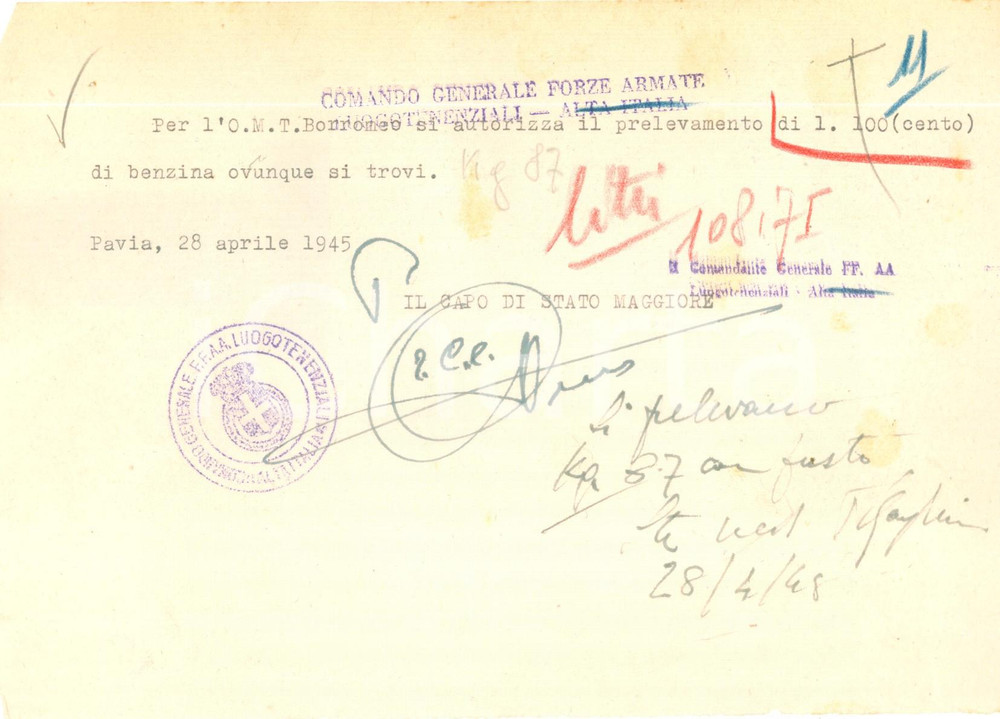 11
COMANDO GENERALE FORZE ARMATE
LUOGOTENENZIALI — ALTA ITALIA
Per l'O.M.T.Borromeo si autorizza il prelevamento di l. 100(cento)
di benzina ovunque si trovi.
Kg 87
litri 108,7I
Pavia, 28 aprile 1945
Il Comandante Generale FF. AA
Luogotenenziali - Alta Italia
IL CAPO DI STATO MAGGIORE
COMANDO GENERALE F.F.A.A. LUOGOTENENZIALI ALTA ITALIA
Si prelevano
Kg. 87 con fusto
28/4/45